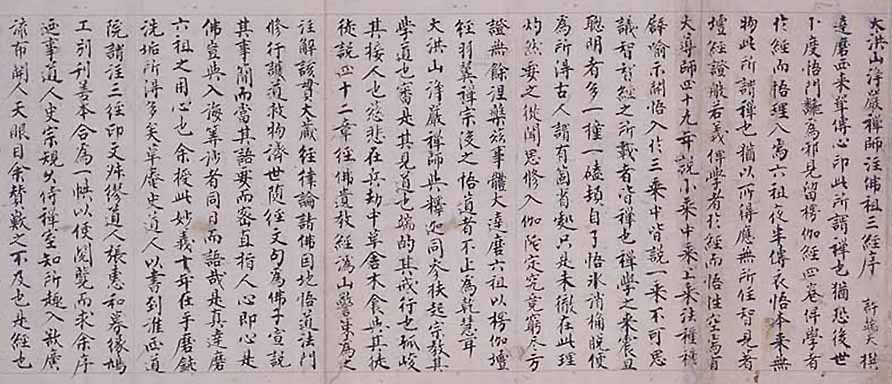 大洪山淨嚴禪師注佛祖三經序　許端夫撰
達磨西來單傳心印此所謂禪也猶恐後世
卜度悟門難為邪見留楞伽經四卷俾學者
於經而悟理入焉六祖夜半傳衣悟本來無
物此所謂禪也猶以所得應無所住智見著
壇經證般若義俾學者於經而悟性空焉
大導師四十九年說小乘中乘上乘法種種
譬喻示開悟入於三乘中皆說一乘不可思
議智智經之所載者皆禪也禪學之來震旦
聰明者多一撞一磕頓自了悟氷消桶脫便
為所得古人謂有箇省處只是未徹在此理
灼然要之從聞思修入伽陀定究竟窮盡方
證無餘涅槃茲事體大達磨六祖以楞伽壇
經羽翼禪宗後之悟道者不止為乾慧耳
大洪山淨嚴禪師與釋迦同參扶起宗教其
學道也審是其見道也端的其戒行也孤峻
其接人也慈悲在兵劫中草舍木食與其徒
徒說四十二章經佛遺教經溈山警策為之
注解該貫大藏經律論諸佛因地悟道法門
修行道救物濟世隨經文句為佛子宣說
其事簡而當其語要而密直指人心即心是
佛豈與入海筭沙者同日而語哉是真達磨
六祖之用心也余授此妙義十年在手磨
洗垢所得多矣草菴史道人以書到淮西道
院請注三經印文殊繆道人張憲和募緣鳩
工別刊善本合為一帙以便閱覽而求余序
迺事道人史宗規久侍禪室知所趣入欲廣
流布開人天眼目余贊歎之不及也是經也